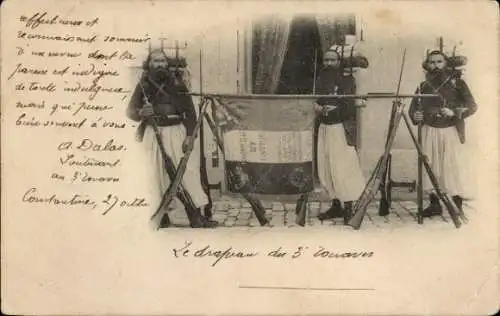 affectueux et
reconnaissant souvenir
d'un neveu dont la
paresse est indigne
de tante indulgence,
mais qui pense
bien souvent à vous
A Dalas.
Lieutenant
au 3e Zouaves
Constantine, 27 octobre
Le drapeau du 3e Zouaves